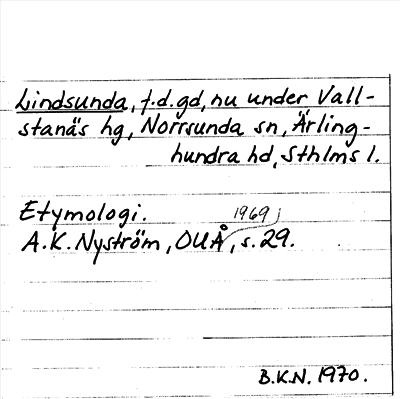 Lindsunda, f.d.gd, nu under Vall-
stanäs hg, Norrsunda sn, Ärling-
hundra hd, Sthlms l.
Etymologi.
A.K. Nyström, OUÅ 1969, s. 29.
B.K.N. 1970.